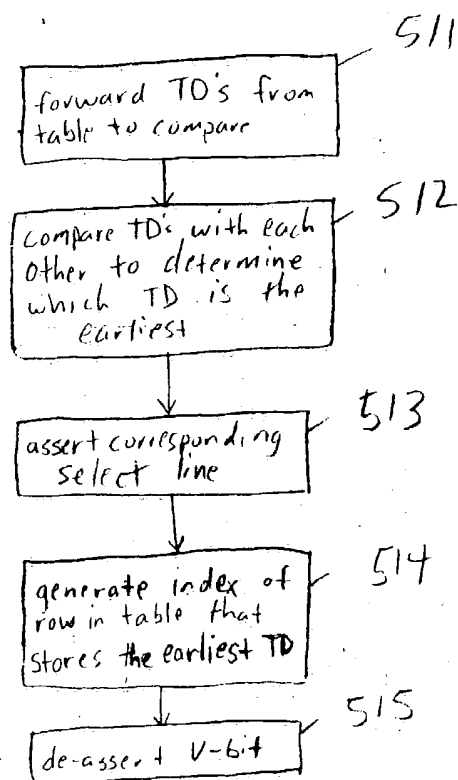 511
forward TD's from
table to compare
512
compare TD's with each
other to determine
which TD is the
earliest
513
assert corresponding
select line
514
generate index of
row in table that
stores the earliest TD
515
de-assert V-bit